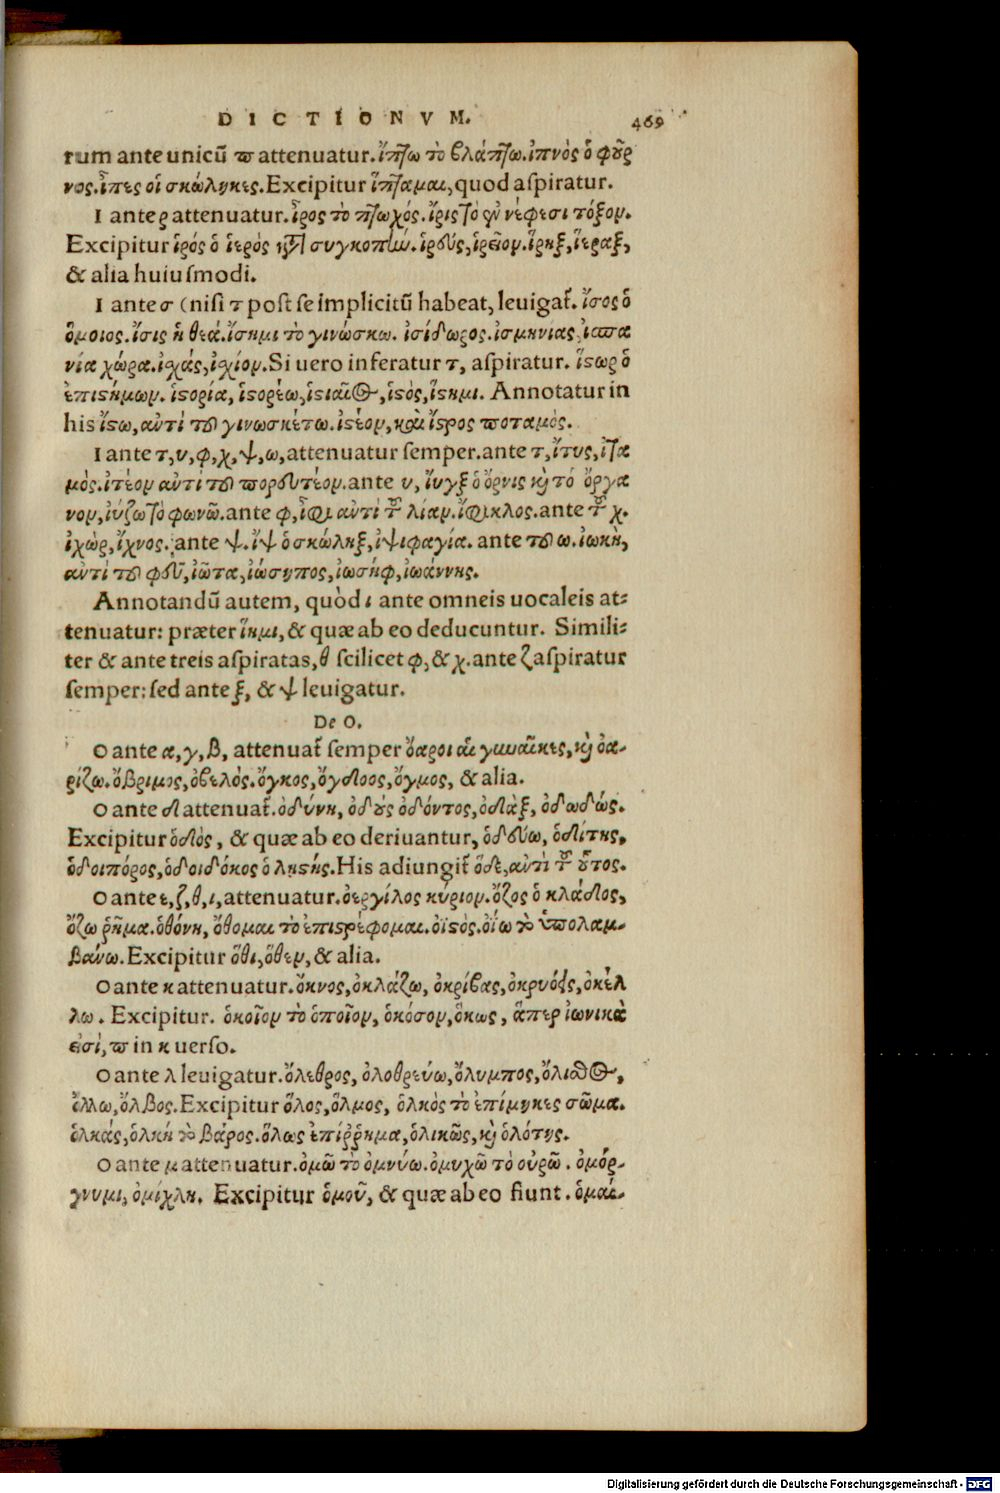 DICTIONVM.
469
rum ante unicū ϖ attenuatur. ἴπτω τὸ βλάπτω. ἰπνὸς ὁ φοῦρ
νος. ἶπες οἱ σκώληκες. Excipitur ἵπταμαι, quod aſpiratur.
I ante ρ attenuatur. ἶρος τὸ πτωχός. ἴρις τὸ ἐν νέφεσι τόξον.
Excipitur ἱρός ὁ ἱερὸς κατὰ συγκοπὴν. ἱρεύς, ἱρεῖον. ἵρηξ, ἵεραξ,
& alia huiuſmodi.
I ante σ (niſi τ poſt ſe implicitū habeat, leuigat̄. ἴσος ὁ
ὅμοιος. ἴσις ἡ θεά. ἴσημι τὸ γινώσκω. ἰσίδωρος. ἰσμηνίας, ἰσπα
νία χώρα. ἰσχάς, ἰσχίον. Si uero inferatur τ, aſpiratur. ἵστωρ ὁ
ἐπιστήμων. ἱστορία, ἱστορέω, ἱστιαῖος, ἱστὸς, ἵστημι. Annotatur in
his ἴστω, αὐτὶ τοῦ γινωσκέτω. ἰστέον, καὶ ἴστρος ϖοταμὸς.
I ante τ, υ, φ, χ, ψ, ω, attenuatur ſemper. ante τ, ἴτυς, ἰτα
μὸς. ἰτέον αὐτὶ τοῦ ϖορευτέον. ante υ, ἴυγξ ὁ ὄρνις καὶ τό ὄργα
νον, ἰύζω τὸ φωνῶ. ante φ, ἶφι αὐτὶ τοῦ λίαν. ἴφικλος. ante τοῦ χ.
ἰχὼρ, ἴχνος. ante ψ. ἴψ ὁ σκώληξ, ἰψιφαγία. ante τοῦ ω. ἰωκὴ,
αὐτὶ τοῦ φεῦ, ἰῶτα, ἰώσηπος, ἰωσήφ, ἰωάννης.
Annotandū autem, quòd ι ante omneis uocaleis at⸗
tenuatur: præter ἵημι, & quæ ab eo deducuntur. Simili⸗
ter & ante treis aſpiratas, θ ſcilicet φ, & χ. ante ζ aſpiratur
ſemper: ſed ante ξ, & ψ leuigatur.
De O.
O ante α, γ, β, attenuat̄ ſemper ὄαροι αἱ γυναῖκες, καὶ ὀα-
ρίζω. ὄβριμος, ὀβελὸς. ὄγκος, ὄγδοος, ὄγμος, & alia.
O ante δ attenuat̄. ὀδύνη, ὀδοὺς ὀδόντος, ὀδὰξ, ὀδωδώς.
Excipitur ὁδὸς, & quæ ab eo deriuantur, ὁδεύω, ὁδίτης,
ὁδοιπόρος, ὁδοιδόκος ὁ λῃστής. His adiungit̄ ὅδε, αὐτὶ τοῦ οὗτος.
O ante ε, ζ, θ, ι, attenuatur. ὀεργίλος κύριον. ὄζος ὁ κλάδος,
ὄζω ῥῆμα. ὀθόνη, ὄθομαι τὸ ἐπιστρέφομαι. ὀϊστὸς. ὀΐω τὸ ὑπολαμ-
βάνω. Excipitur ὅθι, ὅθεν, & alia.
O ante κ attenuatur. ὄκνος, ὀκλάζω, ὀκρίβας, ὀκρυόεις, ὀκέλ
λω. Excipitur. ὁκοῖον τὸ ὁποῖον, ὁκόσον, ὅκως, ἅπερ ἰωνικὰ
ἐστὶ, ϖ in κ uerſo.
O ante λ leuigatur. ὄλεθρος, ὀλοθρεύω, ὄλυμπος, ὄλισθος,
ὄλλω, ὄλβος. Excipitur ὅλος, ὅλμος, ὁλκὸς τὸ ἐπίμηκες σῶμα.
ὁλκάς, ὁλκὴ τὸ βάρος. ὅλως ἐπίῤῥημα, ὁλικῶς, καὶ ὁλότης.
O ante μ attenuatur. ὀμῶ τὸ ὀμνύω. ὀμυχῶ τὸ οὐρῶ. ὀμόρ-
γνυμι, ὀμίχλη. Excipitur ὁμοῦ, & quæ ab eo fiunt. ὁμαί-
Digitalisierung gefördert durch die Deutsche Forschungsgemeinschaft - DFG